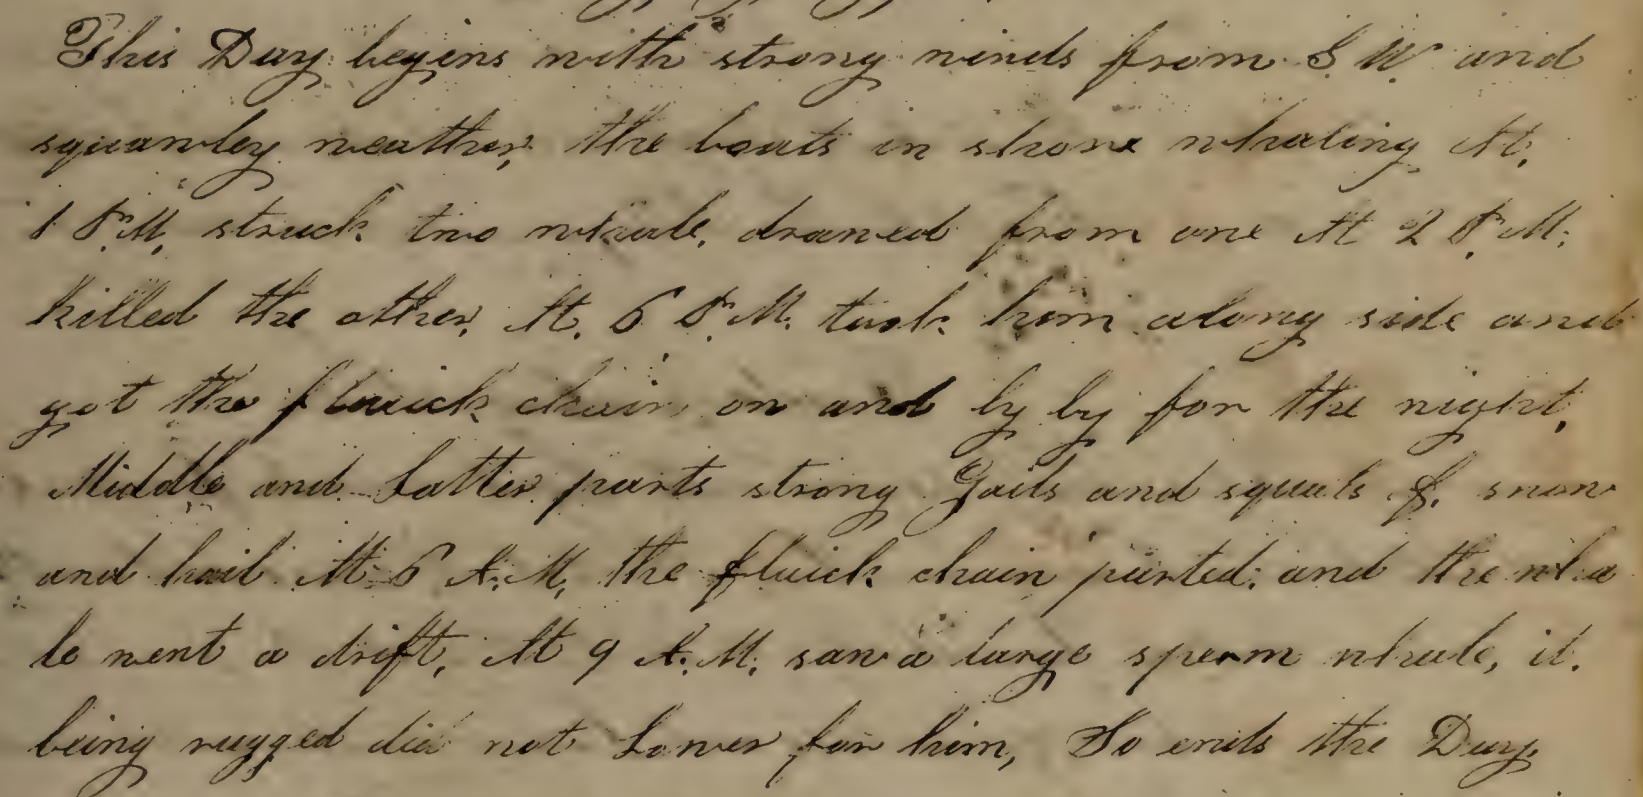 This Day begins with strong winds from S. W. and
squawley weather, the boats in shore whaling At,
1 P.M, struck two whale, drawed from one At 2 P.M;
killed the other, At, 6 P.M. took him along side and
got the fluick chain on and ly by for the night,
Middle and Latter parts strong Gails and squals of, snow
and hail At 6 A.M, the fluick chain parted, and the wha
le went a drift, At 9 A.M, saw a large sperm whale, it,
being rugged did not Lower for him, So ends the Day,